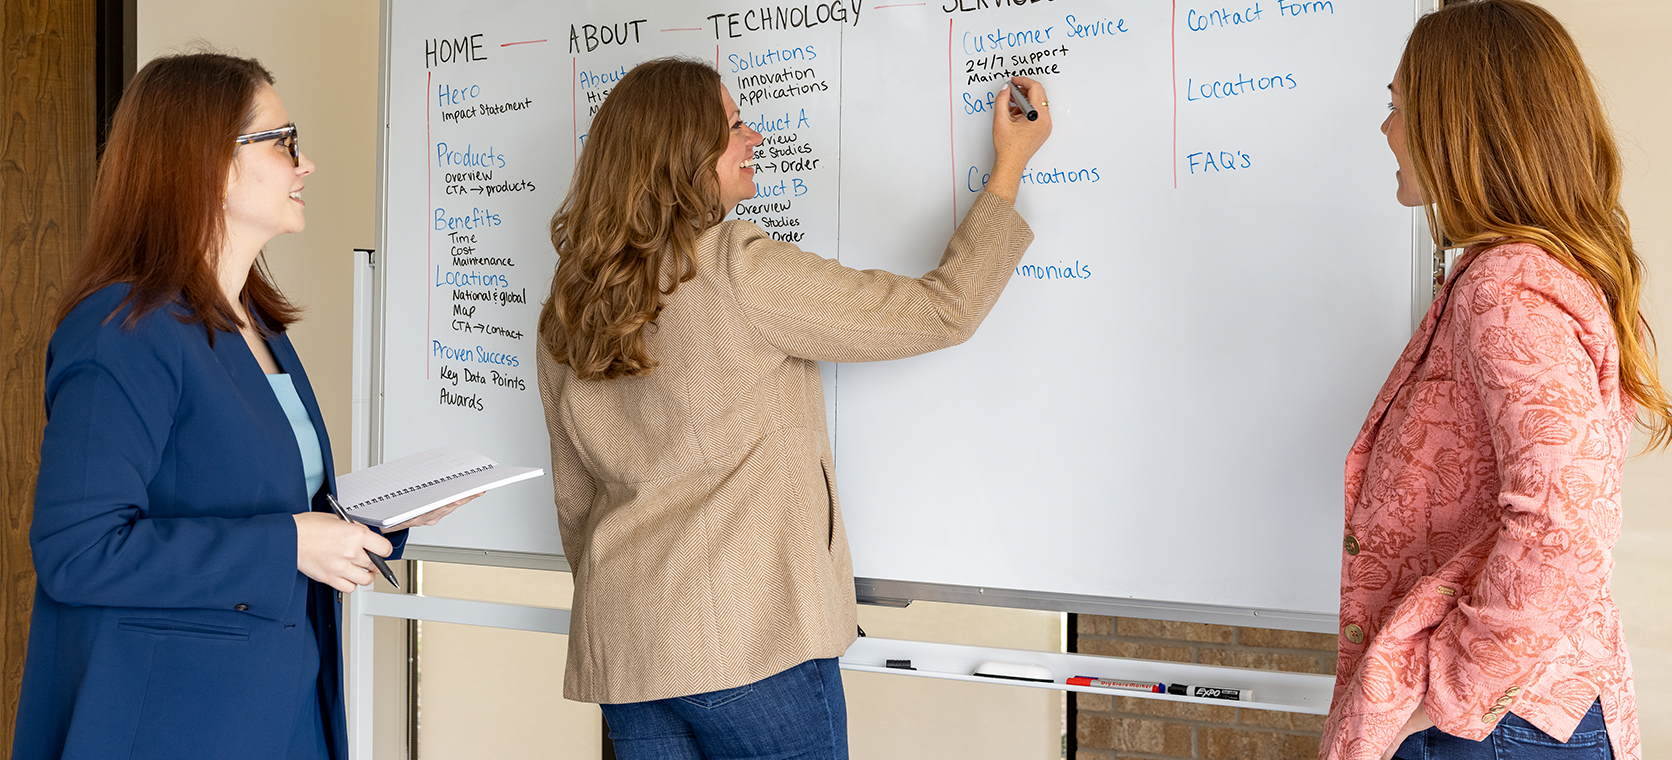 HOME
ABOUT
TECHNOLOGY
Hero
Impact Statement
Products
Overview
CTA → products
Benefits
Time
Cost
Maintenance
Locations
National & global
Map
CTA → contact
Proven Success
Key Data Points
Awards
About
Solutions
Innovation
Applications
A
Studies
→ Order
B
Overview
Studies
Order
Customer Service
24/7 support
Maintenance
Contact Form
Locations
FAQ's
Dry Erase Marker
EXPO